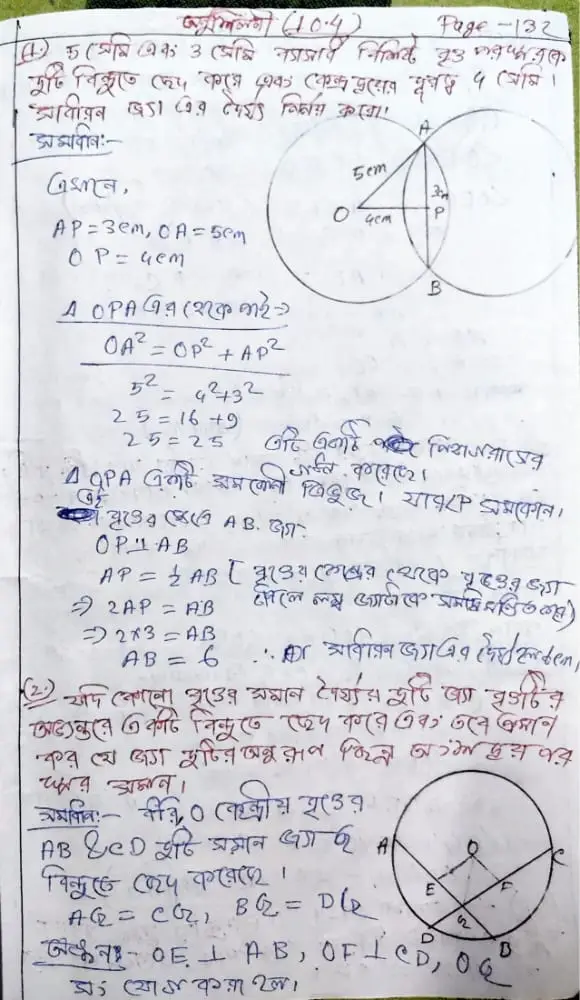 অনুশীলনী (10.4) Page - 132
(1) 5 সেমি এবং 3 সেমি ব্যাসার্ধ বিশিষ্ট বৃত্ত পরস্পরকে
দুটি বিন্দুতে ছেদ করে এবং কেন্দ্র দ্বয়ের দূরত্ব 4 সেমি।
সাধারন জ্যা এর দৈর্ঘ্য নির্ণয় করো।
সমাধান:-
এখানে,
AP = 3cm, OA = 5cm
OP = 4cm
A
5cm
3cm
O
4cm
P
B
Δ OPA এর থেকে পাই ⇒
OA² = OP² + AP²
5² = 4² + 3²
25 = 16 + 9
25 = 25 এটি একটি পিথাগোরাসের
গঠন করেছে।
Δ OPA একটি সমকোণী ত্রিভুজ।
বৃত্তের ক্ষেত্রে AB জ্যা
OP ⊥ AB
AP = ½ AB [বৃত্তের কেন্দ্রের থেকে বৃত্তের জ্যা
টানলে লম্ব জ্যাটিকে সমদ্বিখণ্ডিত করে]
⇒ 2AP = AB
⇒ 2×3 = AB
AB = 6 ∴ সাধারন জ্যা এর দৈর্ঘ্য হল 6cm,
(2) যদি কোনো বৃত্তের সমান দৈর্ঘ্যের দুটি জ্যা বৃত্তটির
অভ্যন্তরে একটি বিন্দুতে ছেদ করে এবং তবে প্রমান
কর যে জ্যা দুটির অনুরূপ ছিন্ন অংশ দ্বয় পর
স্পর সমান।
সমাধান:- ধরি, O কেন্দ্রীয় বৃত্তের
AB & CD দুটি সমান জ্যা G
বিন্দুতে ছেদ করেছে।
AG = CG, BG = DG
A
O
C
E
F
G
D
B
অঙ্কন:- OE ⊥ AB, OF ⊥ CD, OG
সংযোগ করা হল।